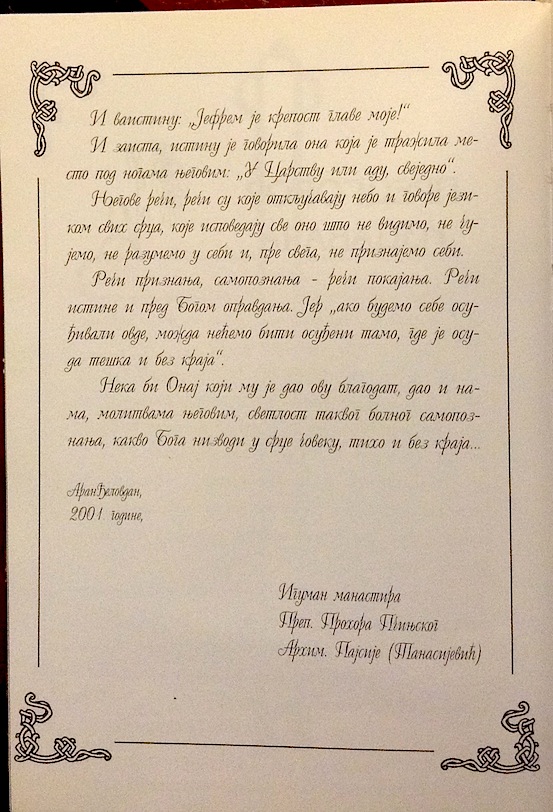 И ваистину: „Јефрем је крепост главе моје!“
И заиста, истину је говорила она која је тражила ме-
сто под ногама његовим: „У Царству или аду, свеједно“.
Његове речи, речи су које откључавају небо и говоре јези-
ком свих срца, које исповедају све оно што не видимо, не чу-
јемо, не разумемо у себи и, пре свега, не признајемо себи.
Речи признања, самопознања - речи покајања. Речи
истине и пред Богом оправдања. Јер „ако будемо себе осу-
ђивали овде, можда нећемо бити осуђени тамо, где је осу-
да тешка и без краја“.
Нека би Онај који му је дао ову благодат, дао и на-
ма, молитвама његовим, светлост таквог болног самопоз-
нања, какво Бога низводи у срце човеку, тихо и без краја...
Аранђеловдан,
2001. године,
Игуман манастира
Преп. Прохора Пчињског
Архим. Пајсије (Танасијевић)